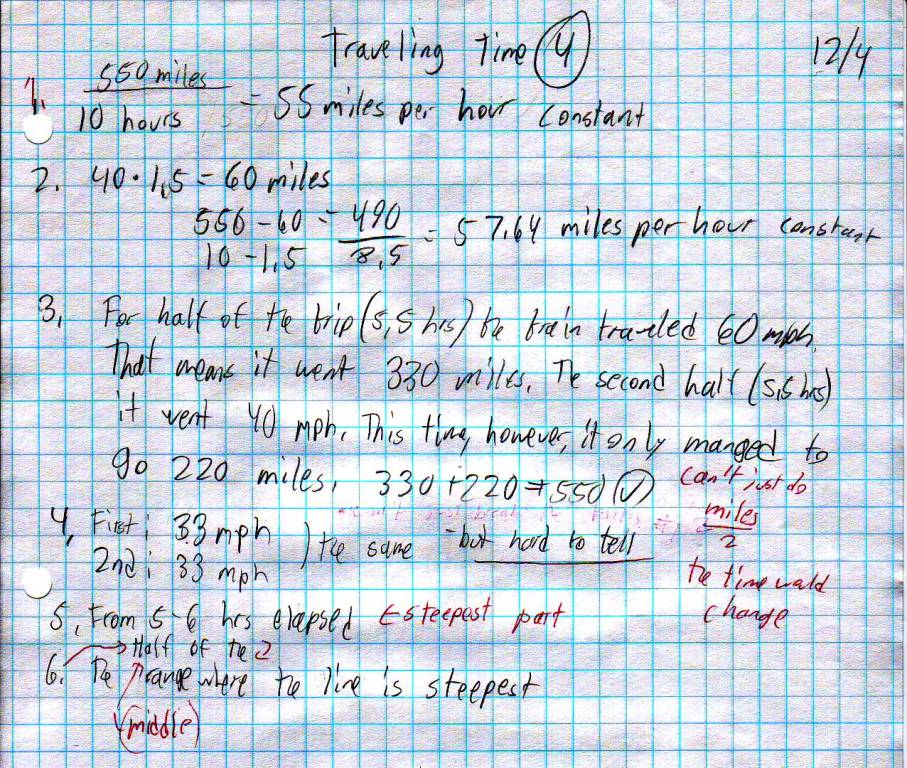 Traveling Time 4
12/4
1. 550 miles
10 hours = 55 miles per hour constant
2. 40 · 1.5 = 60 miles
550 - 60 = 490
10 - 1.5 8.5 = 57.64 miles per hour constant
3. For half of the trip (5,5 hrs) the train traveled 60 mph.
That means it went 330 miles. The second half (5,5 hrs)
it went 40 mph. This time, however, it only manged to
go 220 miles. 330 + 220 = 550 ✓
can't just do
miles
2
the time wald
change
4. First: 33 mph
2nd: 33 mph
) the same - but hard to tell
5. From 5-6 hrs elapsed ← steepest part
→ Half of the 2
6. The range where the line is steepest
(middle)